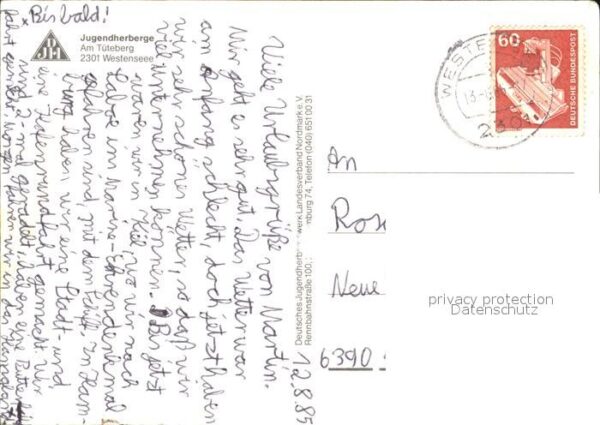 * Bis bald!
DJH
Jugendherberge
Am Tüteberg
2301 Westensee
Viele Urlaubsgrüße von Martin.
Mir geht es sehr gut. Das Wetter war
am Anfang schlecht, doch jetzt haben
wir sehr schönes Wetter, so daß wir
viel unternehmen können. Bis jetzt
waren wir in Kiel, wo wir nach
Laboe im Marine-Ehrendenkmal
gefahren sind, mit dem Schiff. In Ham-
burg haben wir eine Stadt- und
eine Hafenrundfahrt gemacht. Wir
sind 2-mal geradelt, haben eine
fahrt gemacht, morgen fahren wir in das
Deutsches Jugendherb werk Landesverband Nordmark e.V.
Rennbahnstraße 100, mburg 74, Telefon (040) 651 00 31
12.8.85
60
DEUTSCHE BUNDESPOST
WESTE
2301
An
Ros
Neue
6390
privacy protection
Datenschutz